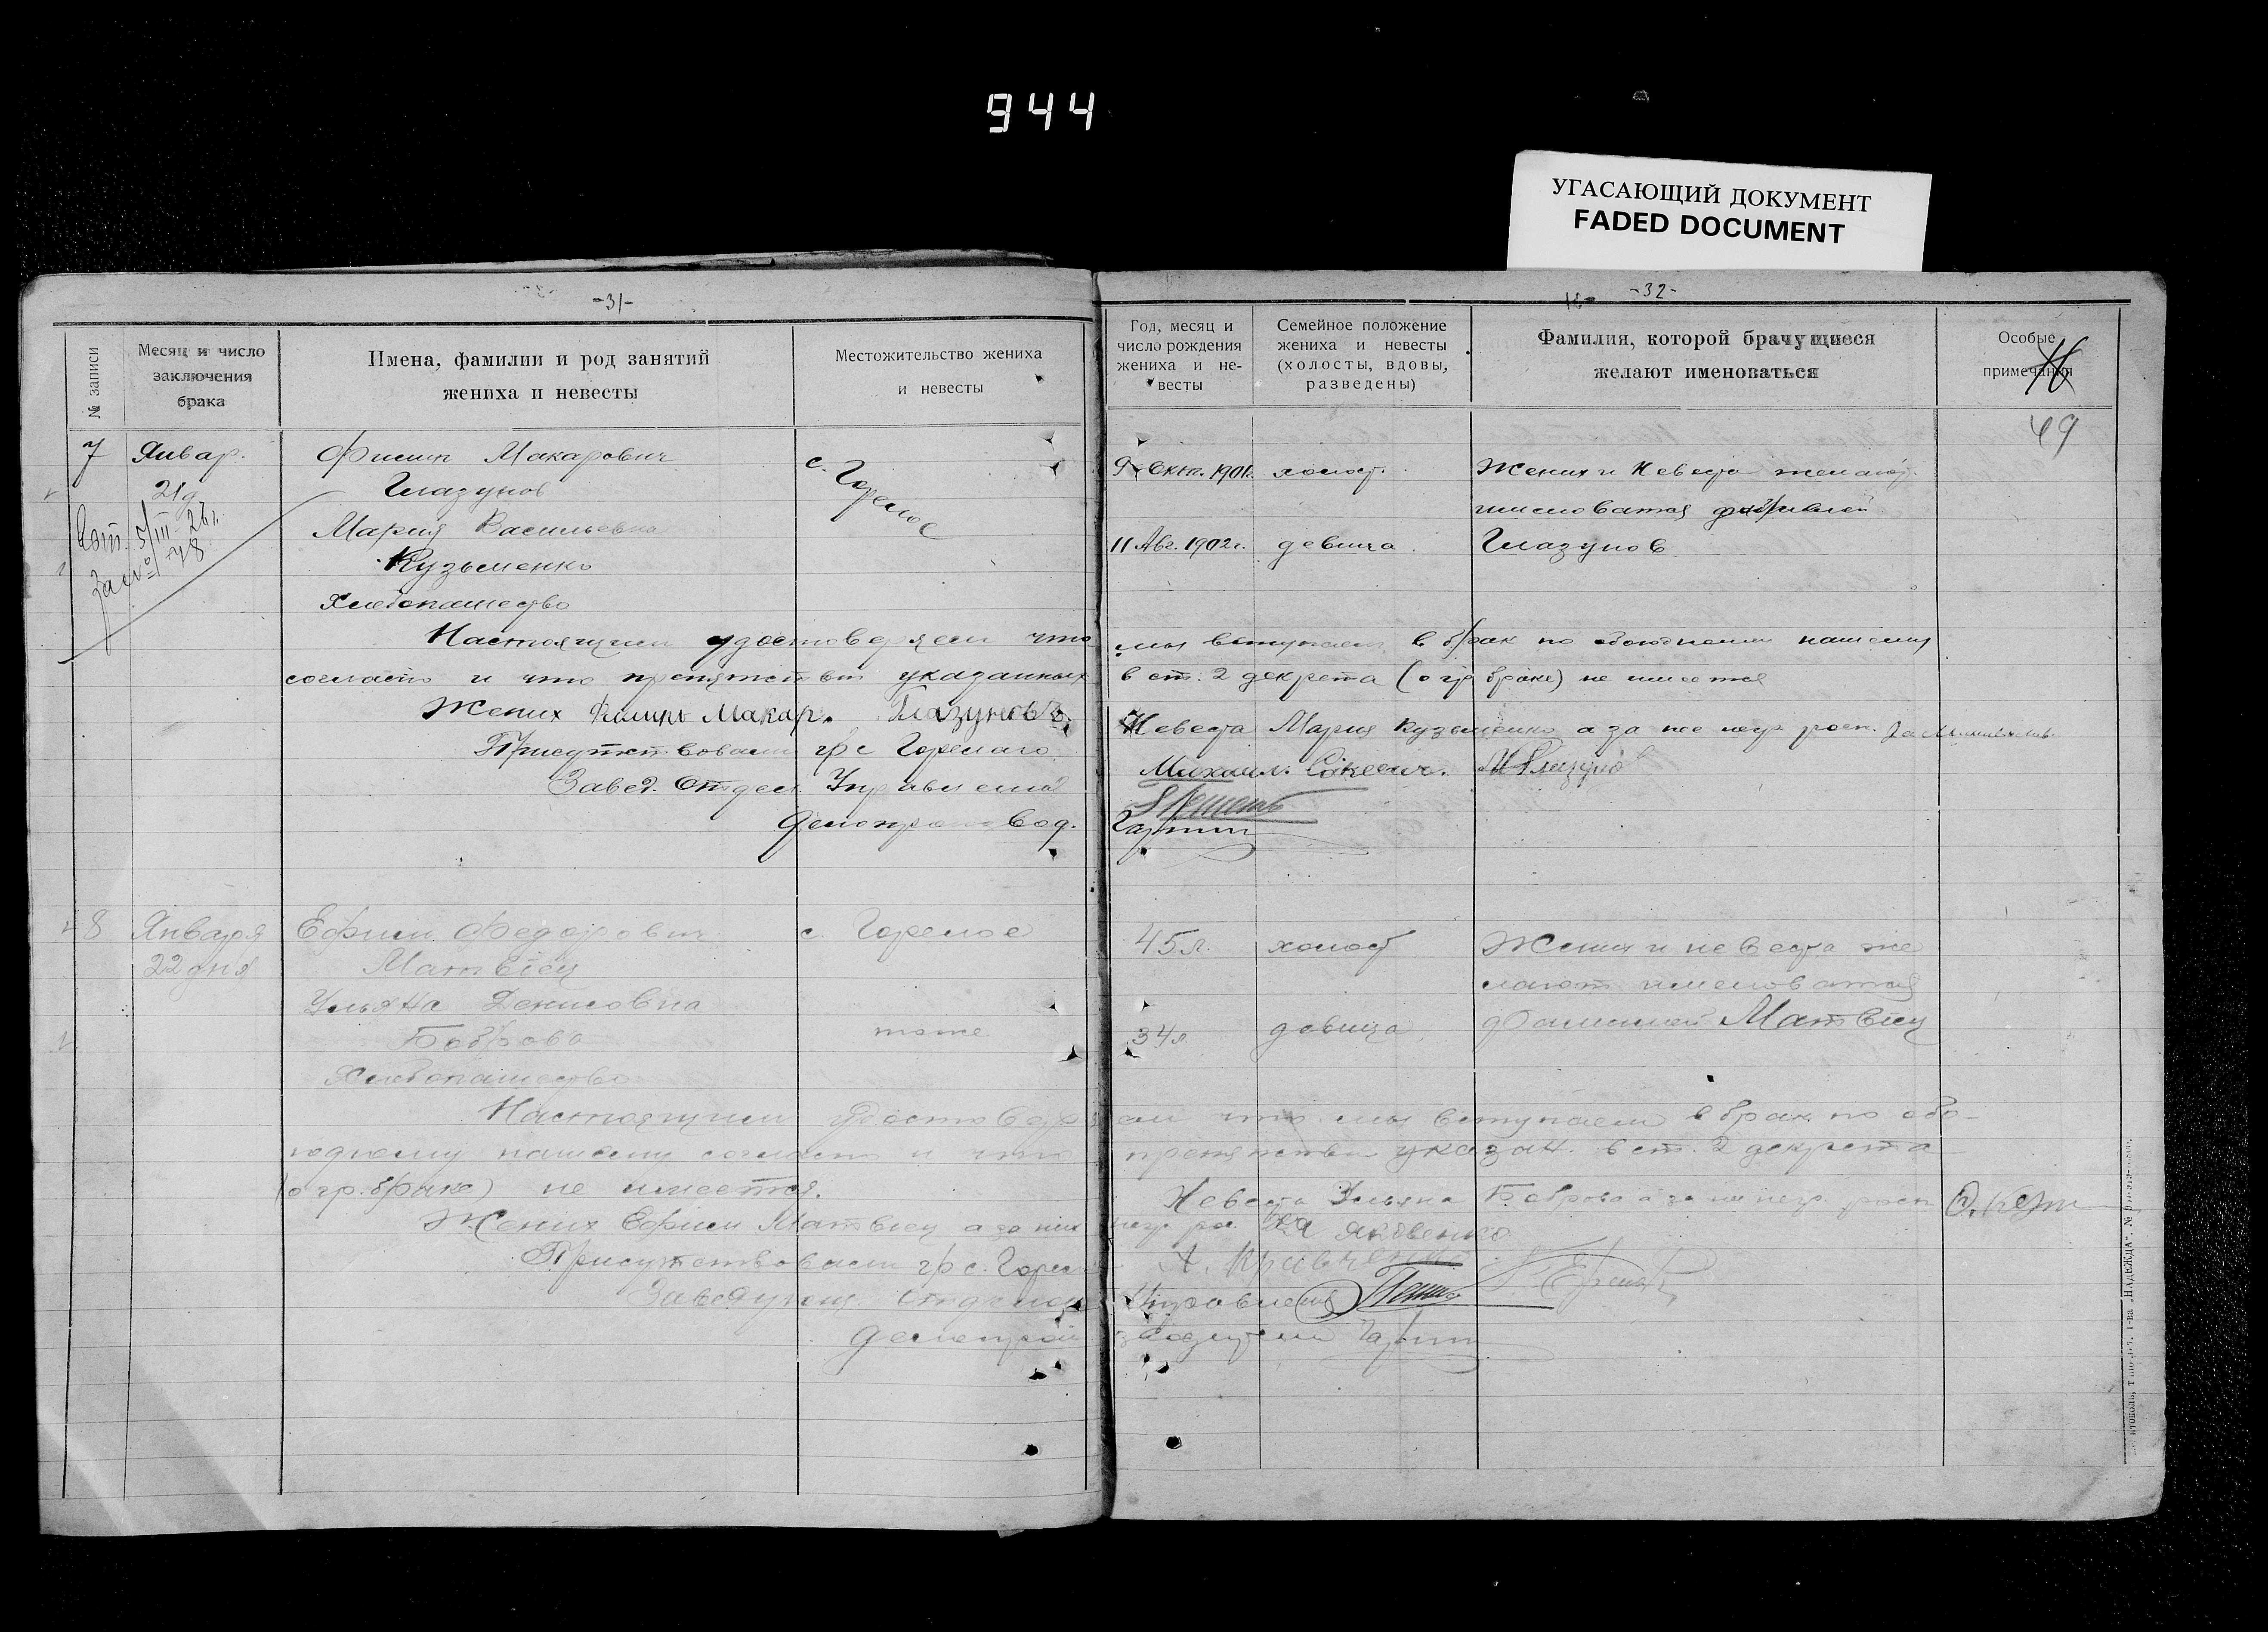 944
УГАСАЮЩИЙ ДОКУМЕНТ
FADED DOCUMENT
-31-
№ записи
Месяц и число
заключения
брака
Имена, фамилии и род занятий
жениха и невесты
Местожительство жениха
и невесты
7
Январ.
21 д
5/III 26 г.
за № 48
Филип Макарович
Глазунов
Мария Васильевна
Кузьменко
Хлебопашество
с. Горелое
Настоящим удостоверяем что
согласию и что препятствий указанных
Жених Филипъ Макар. Глазуновъ
Присутствовали гр с Горелаго
Завед. Отдел. Управления
Делопроизвод.
8
Января
22 дня
Ефим Федорович
Матвіец
Ульяна Денисовна
Боброва
Хлебопашество
с. Горелое
тоже
Настоящим удостоверя
юдному нашему согласию и что
(о гр. браке) не имеется.
Жених Ефим Матвіец а за них
Присутствовали гр с. Горел
Заведующ. Отделом
Делопрои
-32-
Год, месяц и
число рождения
жениха и не-
весты
Семейное положение
жениха и невесты
(холосты, вдовы,
разведены)
Фамилия, которой брачущиеся
желают именоваться
Особые
примечания
49
9 Окт. 1901г.
холост.
Жених и Невеста желают
именоватся фамилией
11 Авг. 1902 г.
девица
Глазунов
мы вступаем в брак по обоюдному нашему
в ст. 2 декрета (о гр браке) не имеется
Невеста Мария Кузьменко а за нее негр росп.
Михаил
45 л.
холост
Жених и невеста же
лают именоватся
34 л
девица
фамилией Матвіец
ем что мы вступаем в брак по обо-
препятствий указан. в ст. 2 декрета
Невеста Ульяна Боброва а за нея негр. росп
негр рос. Яковенко
А. Кравченко
Управления
зводитель